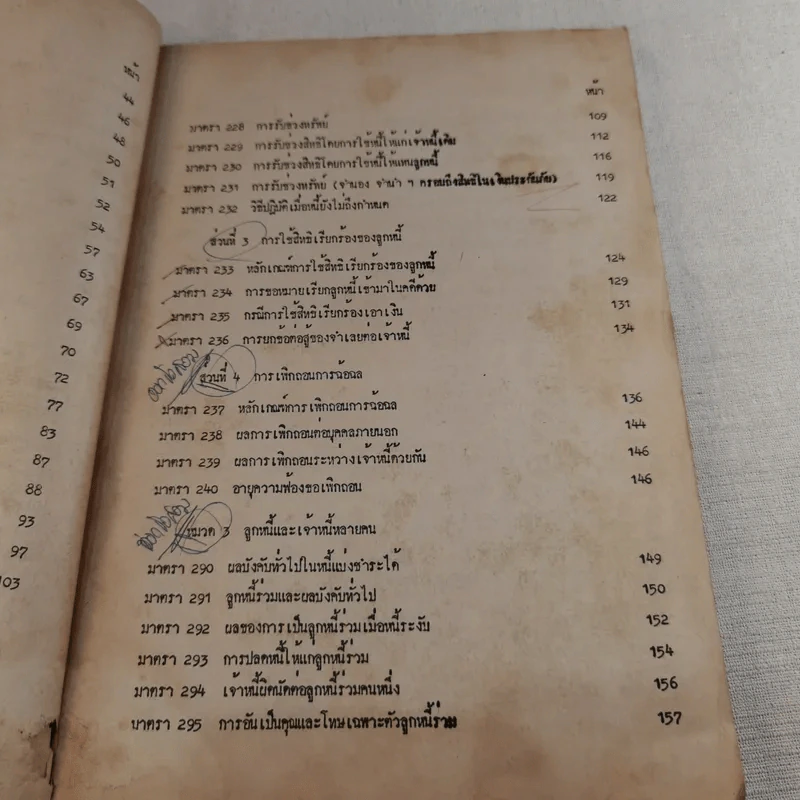 หน้า
44
46
48
50
51
52
54
57
63
67
69
70
72
77
83
87
88
93
97
103
หน้า
มาตรา 228 การรับช่วงทรัพย์ 109
มาตรา 229 การรับช่วงสิทธิโดยการใช้หนี้ให้แก่เจ้าหนี้เดิม 112
มาตรา 230 การรับช่วงสิทธิโดยการใช้หนี้ให้แทนลูกหนี้ 116
มาตรา 231 การรับช่วงทรัพย์ (จำนอง จำนำ ฯ ครอบถึงสิทธิในเงินประกันภัย) 119
มาตรา 232 วิธีปฏิบัติเมื่อหนี้ยังไม่ถึงกำหนด 122
ส่วนที่ 3 การใช้สิทธิเรียกร้องของลูกหนี้
มาตรา 233 หลักเกณฑ์การใช้สิทธิเรียกร้องของลูกหนี้ 124
มาตรา 234 การขอหมายเรียกลูกหนี้เข้ามาในคดีด้วย 129
มาตรา 235 กรณีการใช้สิทธิเรียกร้องเอาเงิน 131
มาตรา 236 การยกข้อต่อสู้ของจำเลยต่อเจ้าหนี้ 134
ส่วนที่ 4 การเพิกถอนการฉ้อฉล
มาตรา 237 หลักเกณฑ์การเพิกถอนการฉ้อฉล 136
มาตรา 238 ผลการเพิกถอนต่อบุคคลภายนอก 144
มาตรา 239 ผลการเพิกถอนระหว่างเจ้าหนี้ด้วยกัน 146
มาตรา 240 อายุความฟ้องขอเพิกถอน 146
หมวด 3 ลูกหนี้และเจ้าหนี้หลายคน
มาตรา 290 ผลบังคับทั่วไปในหนี้แบ่งชำระได้ 149
มาตรา 291 ลูกหนี้ร่วมและผลบังคับทั่วไป 150
มาตรา 292 ผลของการเป็นลูกหนี้ร่วมเมื่อหนี้ระงับ 152
มาตรา 293 การปลดหนี้ให้แก่ลูกหนี้ร่วม 154
มาตรา 294 เจ้าหนี้ผิดนัดต่อลูกหนี้ร่วมคนหนึ่ง 156
มาตรา 295 การอันเป็นคุณและโทษเฉพาะตัวลูกหนี้ร่วม 157